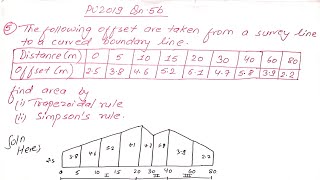 PU2019 Qn-5b
⑤ The following offset are taken from a survey line
to a curved boundary line.
Distance(m) 0 5 10 15 20 30 40 60 80
Offset(m) 2.5 3.8 4.6 5.2 6.1 4.7 5.8 3.9 2.2
find area by
(i) Trapezoidal rule
(ii) Simpson's rule.
Soln
Here;
2.5 3.8 4.6 5.2 6.1 4.7 5.8 3.9 2.2
0 5 10 15 20 30 40 60 80
I II III